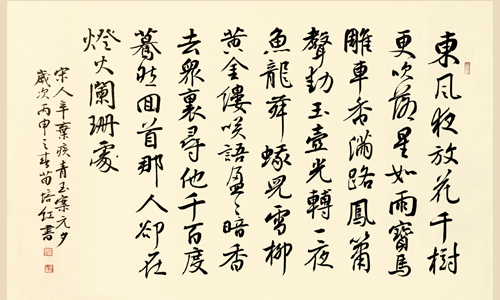 東風夜放花千樹
更吹落星如雨寶馬
雕車香滿路鳳簫
聲動玉壺光轉一夜
魚龍舞蛾兒雪柳
黃金縷笑語盈〻暗香
去衆裏尋他千百度
驀然回首那人卻在
燈火闌珊處
宋人辛棄疾青玉案元夕
歲次丙申之春苗培紅書